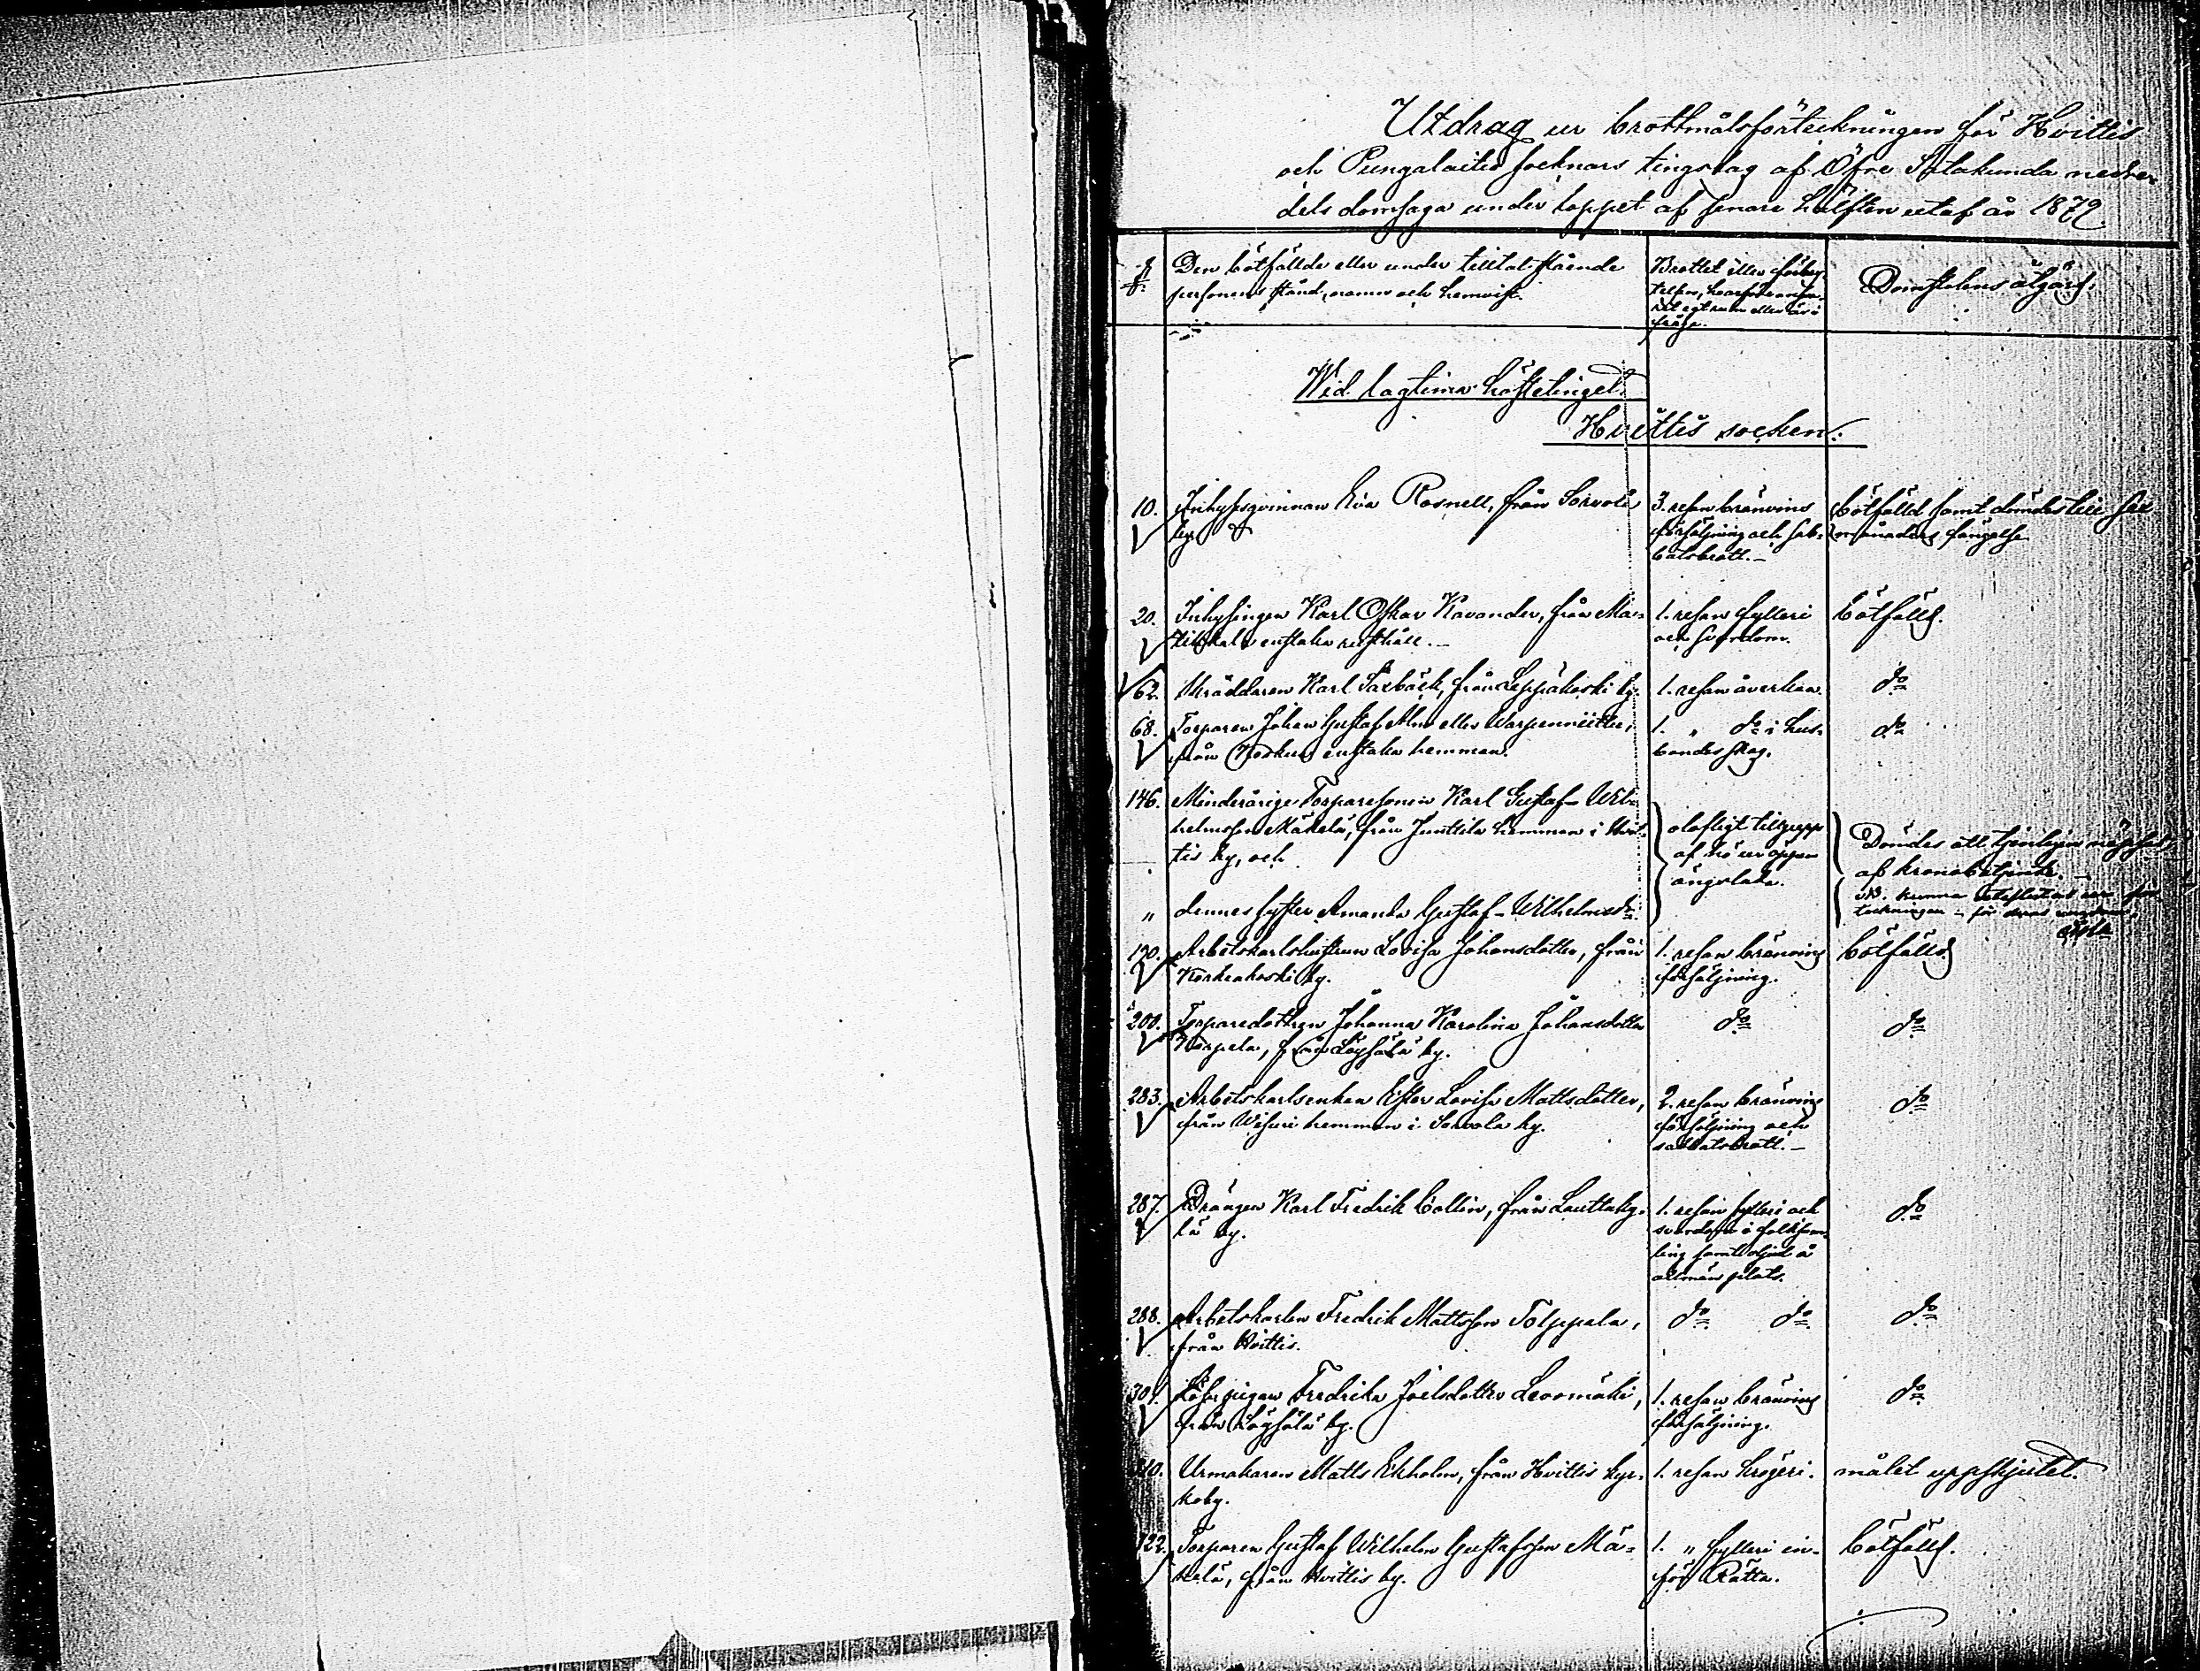 Utdrag ur brottmålsförteckningen för Hvittis
och Pungalaitio socknars tingslag af Öfre Satakunda nedre
dels domsaga under loppet af senare hälften utaf år 1879.
Den bötfällde eller under tilltal stående
personens stånd, namn och hemvist.
Brottet eller förbry
telsen,
rätt egt rum eller är i
fråga.
Domstolens åtgärd.
Wid lagtima hösttinget.
Hvittis socken:
10. Inhysesqvinnan Eva Rosnell, från Sorvola
by.
3. resan bränvins
försäljning och sab-
batsbrott.
bötfälld samt dömdes till sex
månaders fängelse.
20. Inhysingen Karl Oskar Kavander, från Ma-
enstaka rusthåll.
1. resan fylleri
och svordom.
bötfälld.
62. Skräddaren Karl Saxbäck, från Leppäkoski by.
1. resan åverkan.
do
68. Torparen Johan Gustaf Alm eller Warpenniittu,
från enstaka hemman.
1. " do i hus-
bondes skog.
do
146. Minderårige Torparesonen Karl Gustaf Wil-
helmsson Mäkelä, från Junttila hemman i Hvit-
tis by, och
" dennes syster Amanda Gustaf-Wilhelmsdr.
olofligt tillgrepp
af hö ur öppen
ängslada.
Dömdes att tjenligen näpsas
af kronobetjent.
NB. kunna ur för
teckningen för deras
170. Arbetskarlshustrun Lovisa Johansdotter, från
Korkeakoski by.
1. resan bränvins
försäljning.
bötfälld
200. Torparedottren Johanna Karolina Johansdotter
Korpela, från Löysälä by.
do
do
283. Arbetskarlsenkan Ester Lovisa Mattsdotter,
från Wisuri hemman i Sorvola by.
2. resan bränvins
försäljning och
sabbatsbrott.
do
287. Drängen Karl Fredrik Collin, från Lauttaky-
lä by.
1. resan fylleri och
svordom i folksam-
ling samt oljud å
allmän plats.
do
288. Arbetskarlen Fredrik Mattsson Tolppala,
från Hvittis.
do do
do
301. Lösa pigan Fredrika Joelsdotter Levomäki,
från Löysälä by.
1. resan bränvins
försäljning.
do
Urmakaren Matts Ekholm, från Hvittis kyr-
koby.
1. resan krögeri.
målet uppskjutet.
122. Torparen Gustaf Wilhelm Gustafsson Mä-
kelä, från Hvittis by.
1. " fylleri in-
för Rätta.
bötfälld.